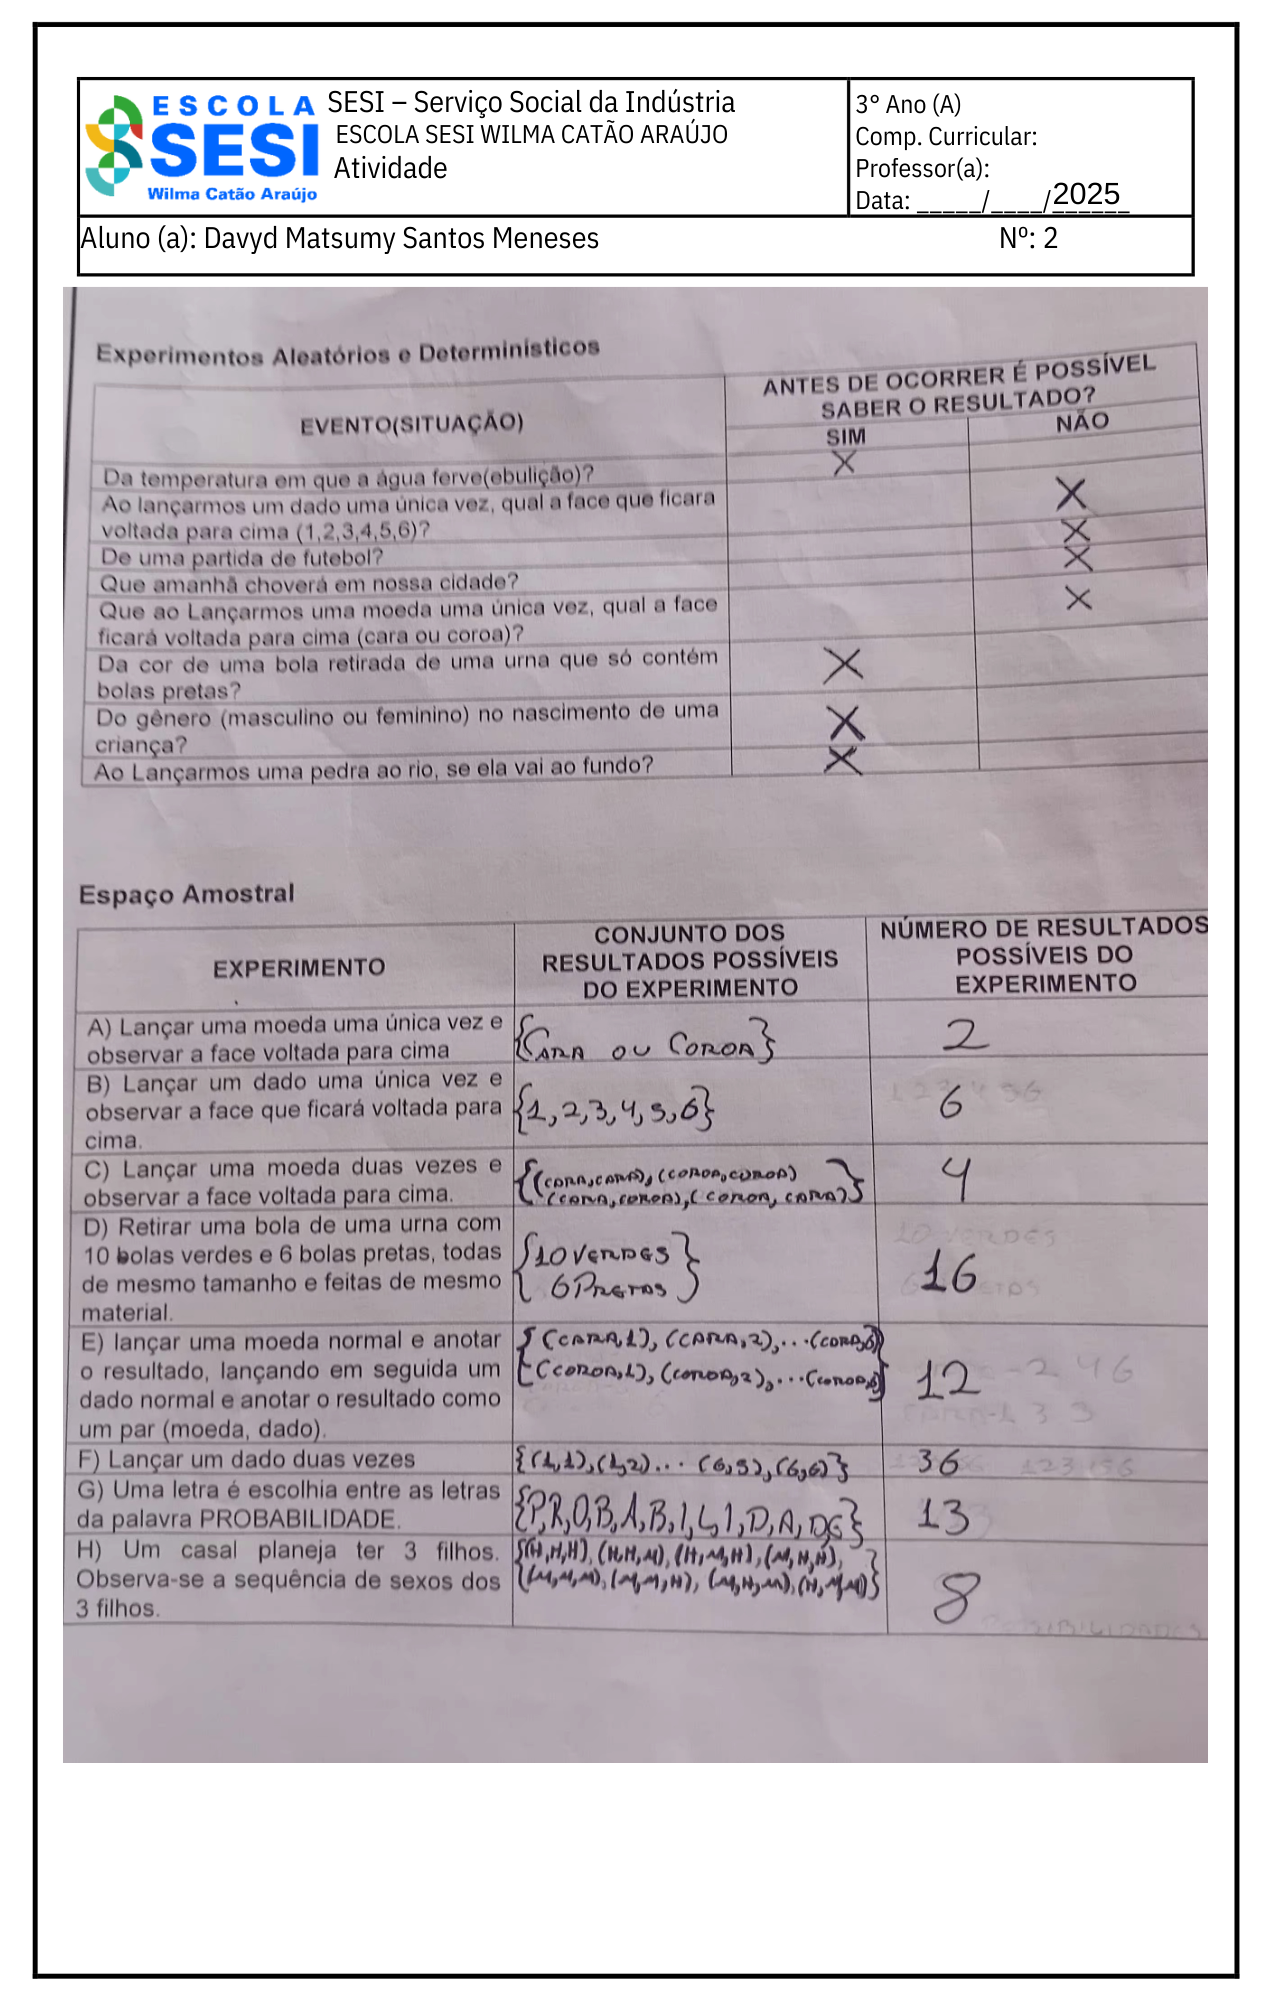 ESCOLA
SESI
Wilma Catão Araújo
SESI – Serviço Social da Indústria
ESCOLA SESI WILMA CATÃO ARAÚJO
Atividade
3° Ano (A)
Comp. Curricular:
Professor(a):
Data: _____/____/2025
Aluno (a): Davyd Matsumy Santos Meneses Nº: 2
Experimentos Aleatórios e Determinísticos
EVENTO(SITUAÇÃO)
ANTES DE OCORRER É POSSÍVEL
SABER O RESULTADO?
SIM NÃO
Da temperatura em que a água ferve(ebulição)? X
Ao lançarmos um dado uma única vez, qual a face que ficara
voltada para cima (1,2,3,4,5,6)? X
De uma partida de futebol? X
Que amanhã choverá em nossa cidade? X
Que ao Lançarmos uma moeda uma única vez, qual a face
ficará voltada para cima (cara ou coroa)? X
Da cor de uma bola retirada de uma urna que só contém
bolas pretas? X
Do gênero (masculino ou feminino) no nascimento de uma
criança? X
Ao Lançarmos uma pedra ao rio, se ela vai ao fundo? X
Espaço Amostral
EXPERIMENTO
CONJUNTO DOS
RESULTADOS POSSÍVEIS
DO EXPERIMENTO
NÚMERO DE RESULTADOS
POSSÍVEIS DO
EXPERIMENTO
A) Lançar uma moeda uma única vez e
observar a face voltada para cima
{CARA OU COROA}
2
B) Lançar um dado uma única vez e
observar a face que ficará voltada para
cima.
{1,2,3,4,5,6}
6
C) Lançar uma moeda duas vezes e
observar a face voltada para cima.
{(CARA,CARA),(COROA,COROA)
(CARA,COROA),(COROA,CARA)}
4
D) Retirar uma bola de uma urna com
10 bolas verdes e 6 bolas pretas, todas
de mesmo tamanho e feitas de mesmo
material.
{10 VERDES
6 PRETAS}
16
E) lançar uma moeda normal e anotar
o resultado, lançando em seguida um
dado normal e anotar o resultado como
um par (moeda, dado).
{(CARA,1),(CARA,2),...(CARA,6)
(COROA,1),(COROA,2),...(COROA,6)}
12
F) Lançar um dado duas vezes
{(1,1),(1,2)...(6,5),(6,6)}
36
G) Uma letra é escolhia entre as letras
da palavra PROBABILIDADE.
{P,R,O,B,A,B,I,L,I,D,A,D,E}
13
H) Um casal planeja ter 3 filhos.
Observa-se a sequência de sexos dos
3 filhos.
{(H,H,H),(H,H,M),(H,M,H),(M,H,H),
(M,M,M),(M,M,H),(M,H,M),(H,M,M)}
8